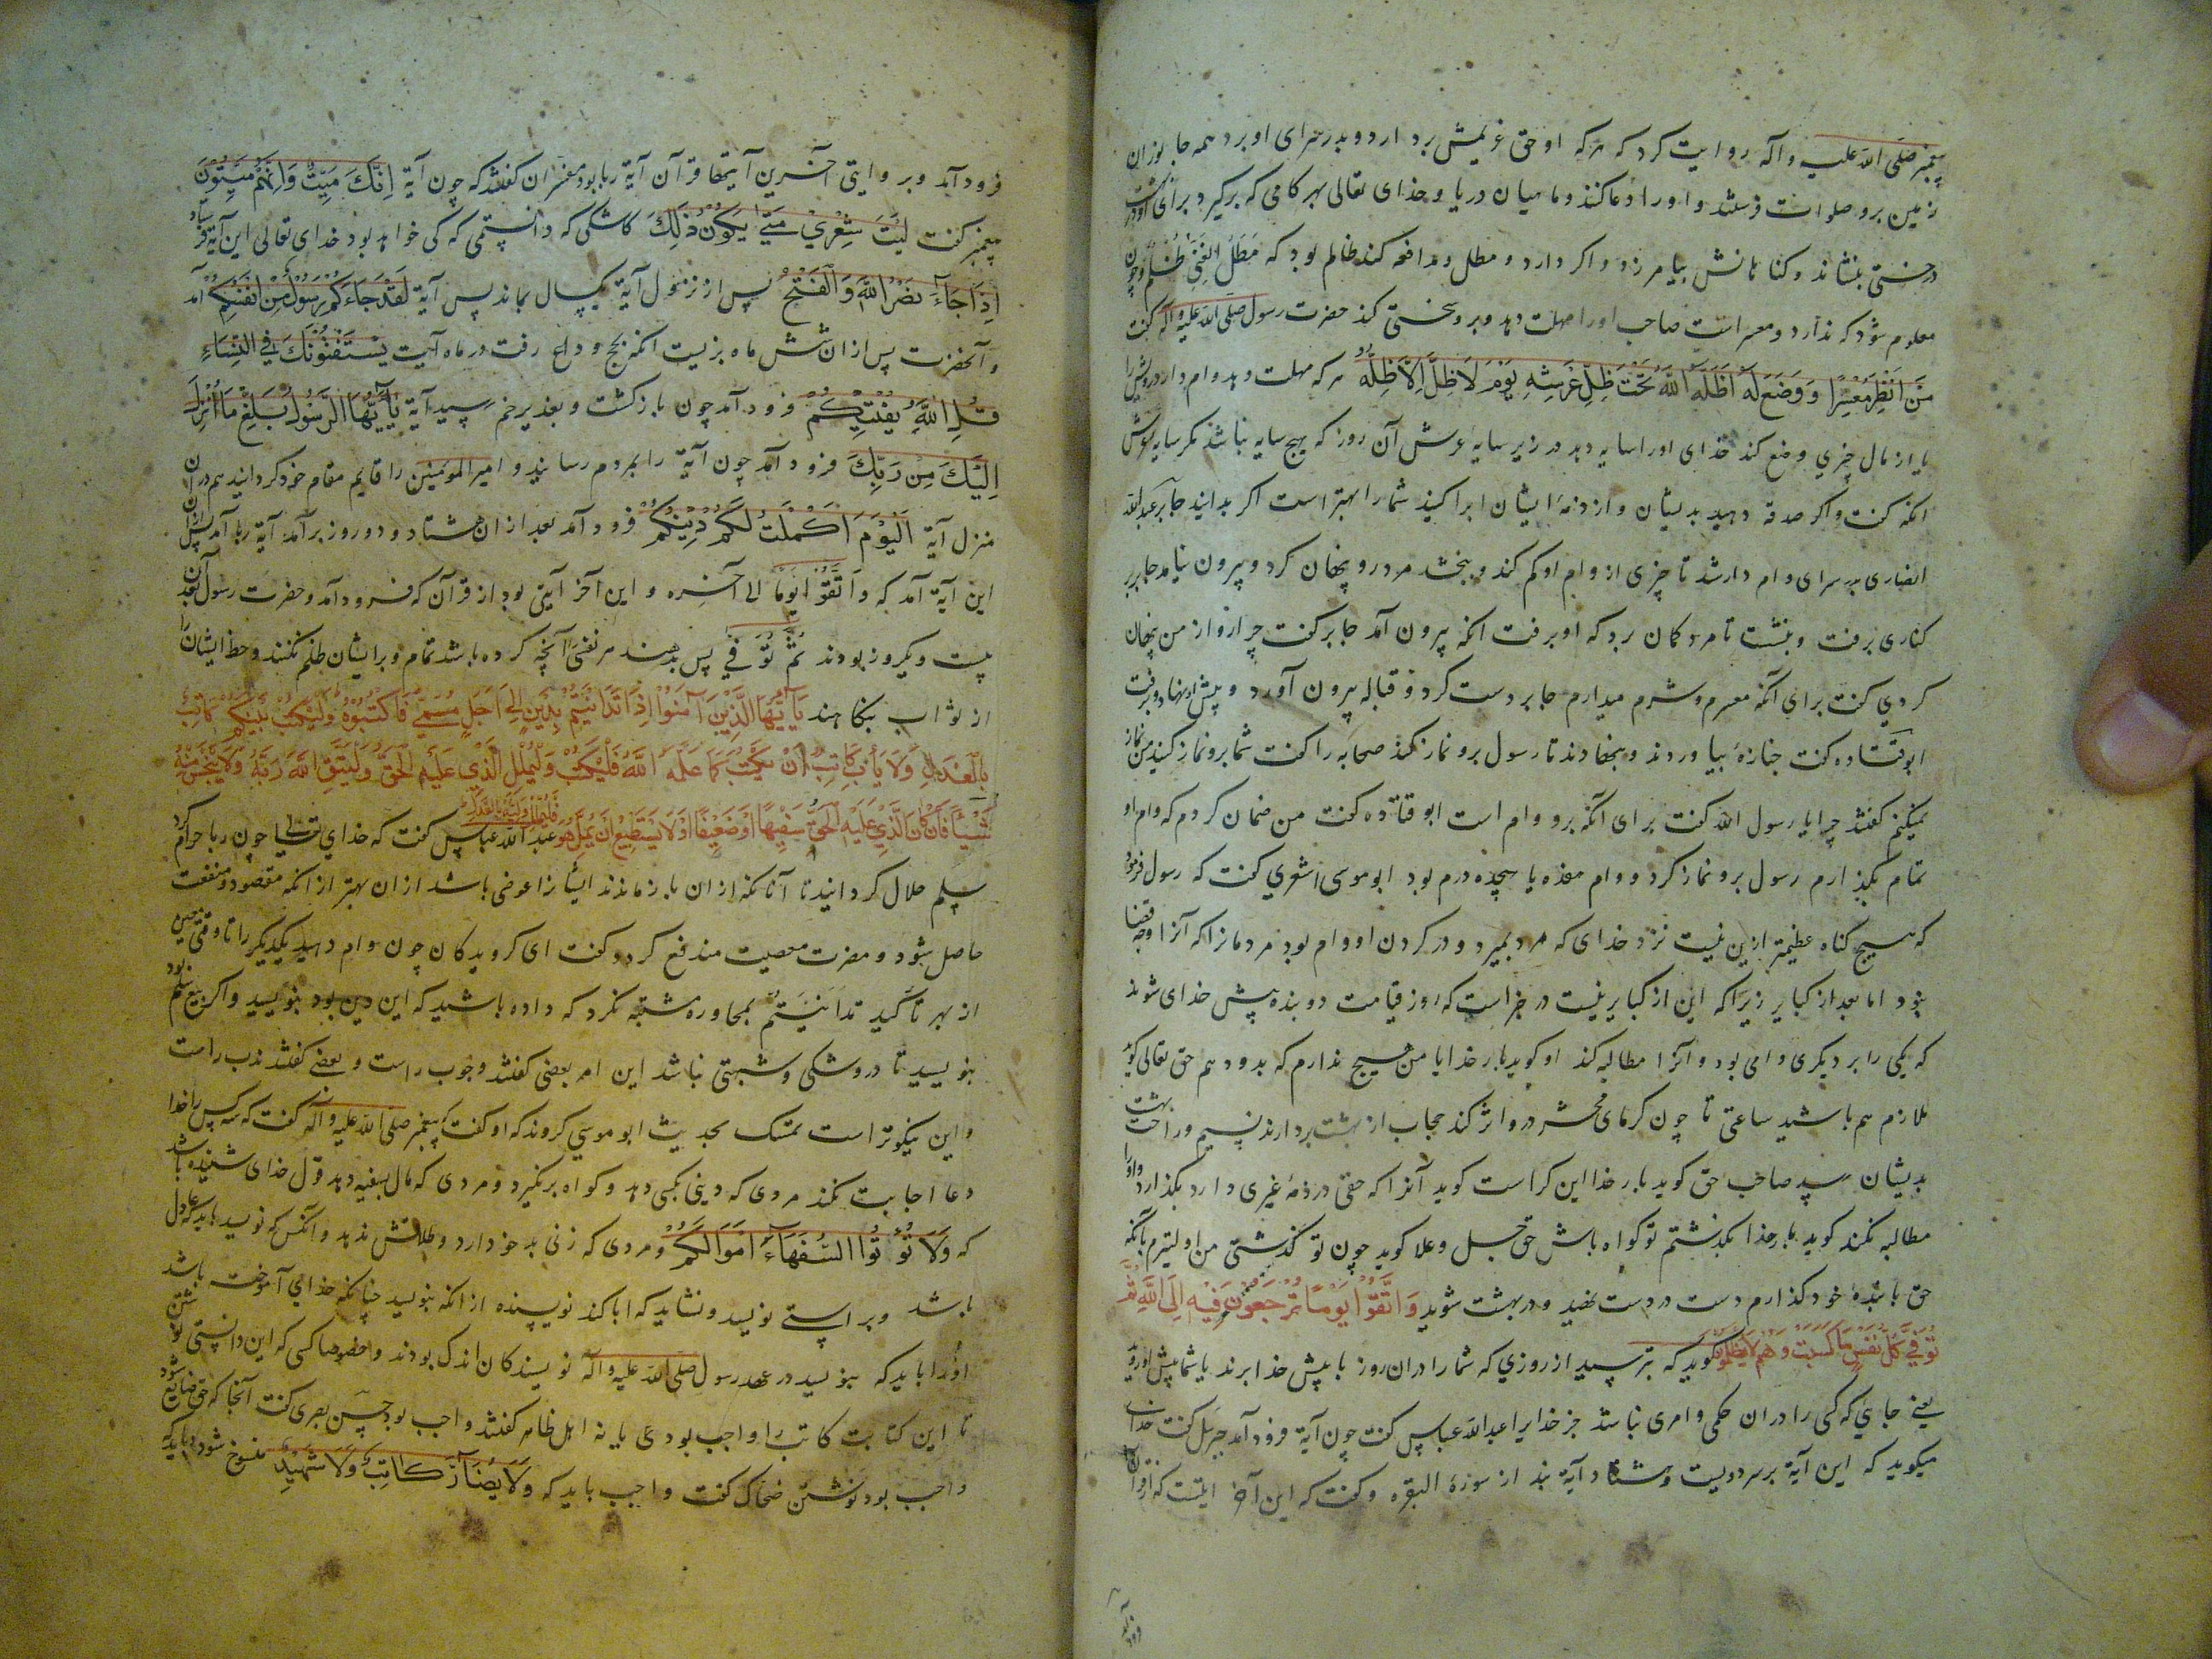 پیغمبر صلی الله علیه و آله روایت کرد که هر که او حق غریمش بردارد و بدر سرای او برد همه جانوران
زمین برو صلوات فرستند و او را دعا کنند و ماهیان دریا و خدای تعالی بهر کامی که برگیرد برای او در بهشت
درختی بنشاند و کناهانش بیامرزد و اکر دارد و مطل و مدافعه کند ظالم بود که مَطَلُ الغَنِیِّ ظُلْمٌ و چون
معلوم شود که ندارد و معسر است صاحب او را مهلت دهد و برو سختی نکند حضرت رسول صلی الله علیه و آله کفت
مَنْ اَنْظَرَ مُعْسِرًا وَ وَضَعَ لَهُ اَظَلَّهُ اللّٰهُ تَحْتَ ظِلِّ عَرْشِهِ یَوْمَ لَا ظِلَّ اِلَّا ظِلُّهُ هر که مهلت دهد وام دار درویش را
یا از مال چیزی وضع کند خدای او را سایه دهد در زیر سایه عرش آن روز که هیچ سایه نباشد مکر سایه عرش
انکه کفت و اکر صدقه دهید بدیشان و از ذمه ایشان ابرا کنید شما را بهتر است اکر بدانید جابر عبدالله
انصاری بدر سرای وام دار شد تا چیزی از وام او کم کند و ببخشد مرد رو پنهان کرد و بیرون نیامد جابر بر
کناری برفت و بنشست تا مرد کمان برد که او برفت انکه بیرون آمد جابر کفت چرا رو از من پنهان
کردی کفت برای آنکه معسرم و شرم میدارم جابر دست کرد و قباله بیرون آورد و پیش او نهاد و برفت
ابوقتاده کفت جنازهٔ بیاوردند و بنهادند تا رسول برو نماز کند صحابه را کفت شما برو نماز کنید من نماز
نمیکنم کفتند چرا یا رسول الله کفت برای آنکه برو وام است ابوقتاده کفت من ضمان کردم که وام او
تمام بکذارم رسول برو نماز کرد و وام هفده یا هجده درم بود ابو موسی اشعری کفت که رسول فرمود
که هیچ کناه عظیمتر ازین نیست نزد خدای که مرد بمیرد و در کردن او وام بود مردمانرا که آنرا وجه قضا
نبود اما بعد از کبایر زیرا که این از کبایر نیست در خبر است که روز قیامت دو بنده پیش خدای شوند
که یکی را بر دیکری وامی بود و آنرا مطالبه کند او کوید بار خدایا من هیچ ندارم که بدو دهم حق تعالی کوید
ملازم هم باشید ساعتی تا چون کرمای محشر درو اثر کند حجاب از بهشت بردارند نسیم و راحت بهشت
بدیشان رسد صاحب حق کوید بار خدا این کراست کوید آنرا که حقی در ذمهٔ غیری دارد بکذارد و او را
مطالبه نکند کوید بار خدا بکذشتم تو کواه باش حق جل و علا کوید چون تو کذشتی من اولیترم بآنکه
حق بابندهٔ خود کذارم دست در دست نهید و در بهشت شوید وَاتَّقُوْا یَوْمًا تُرْجَعُوْنَ فِیْهِ اِلَی اللّٰهِ ثُمَّ
تُوَفّٰی کُلُّ نَفْسٍ مَا کَسَبَتْ وَ هُمْ لَا یُظْلَمُوْنَ کوید که بترسید از روزی که شما را دران روز با پیش خدا برند یا شما پیش او روید
یعنے جایی که کس را دران حکمی و امری نباشد جز خدایرا عبدالله عباس کفت چون آیة فرود آمد جبرئیل کفت خدات
میکوید که این آیة بر سر دویست و هشتاد آیة نه از سورة البقره و کفت که این آخر آیتیست که از قرآن
فرود آمد
فرود آمد و بر وایتی آخرین آیتها قرآن آیة ربا بود مفسران کفتند که چون آیة اِنَّكَ مَیِّتٌ وَ اِنَّهُمْ مَیِّتُوْنَ
پیغمبر کفت لَیْتَ شِعْرِیْ مَتٰی یَکُوْنُ ذٰلِكَ کاشکی که دانستمی که کی خواهد بود خدای تعالی این آیة فرستاد
اِذَا جَاءَ نَصْرُ اللّٰهِ وَالْفَتْحُ پس از نزول آیة یکسال بماند پس آیة لَقَدْ جَاءَکُمْ رَسُوْلٌ مِنْ اَنْفُسِکُمْ آمد
و آنحضرت پس ازان شش ماه بزیست انکه بحج وداع رفت در راه آیت یَسْتَفْتُوْنَكَ فِی النِّسَاءِ
قُلِ اللّٰهُ یُفْتِیْکُمْ فرود آمد چون بازکشت و بغدیر خم رسید آیة یَا اَیُّهَا الرَّسُوْلُ بَلِّغْ مَا اُنْزِلَ
اِلَیْكَ مِنْ رَبِّكَ فرود آمد چون آیة را بمردم رسانید و امیرالمومنین را قایم مقام خود کردانید هم در ان
منزل آیة اَلْیَوْمَ اَکْمَلْتُ لَکُمْ دِیْنَکُمْ فرود آمد بعد ازان هشتاد و دو روز برآمد آیة ربا آمد پس ازان
این آیة آمد که وَاتَّقُوْا یَوْمًا الی آخره و این آخر آیتی بود از قرآن که فرود آمد و حضرت رسول بعد آن
بیست و یکروز بودند ثُمَّ تُوَفّٰی پس بدهند هر نفسی آنچه کرده باشد تمام و برایشان ظلم نکنند و حظ ایشان را
از ثواب بنکاهند یَا اَیُّهَا الَّذِیْنَ آمَنُوْا اِذَا تَدَایَنْتُمْ بِدَیْنٍ اِلٰی اَجَلٍ مُسَمًّی فَاکْتُبُوْهُ وَلْیَکْتُبْ بَیْنَکُمْ کَاتِبٌ
بِالْعَدْلِ وَلَا یَأْبَ کَاتِبٌ اَنْ یَکْتُبَ کَمَا عَلَّمَهُ اللّٰهُ فَلْیَکْتُبْ وَلْیُمْلِلِ الَّذِیْ عَلَیْهِ الْحَقُّ وَلْیَتَّقِ اللّٰهَ رَبَّهُ وَلَا یَبْخَسْ مِنْهُ
شَیْئًا فَاِنْ کَانَ الَّذِیْ عَلَیْهِ الْحَقُّ سَفِیْهًا اَوْ ضَعِیْفًا اَوْ لَا یَسْتَطِیْعُ اَنْ یُمِلَّ هُوَ فَلْیُمْلِلْ وَلِیُّهُ بِالْعَدْلِ عبدالله عباس کفت که خدای تعالی چون ربا حرام کرد
سلم حلال کردانید تا آنانکه ازان بازماندند ایشانرا عوضی باشد ازان بهتر از انکه مقصود و منفعت
حاصل شود و مضرت معصیت مندفع کردد کفت ای کرویدکان چون وام دهید یکدیکر را تا وقتی معین
از بهر تأکید تَدَایَنْتُمْ بمحاوره مشتبه نکردد که داده باشید که این دین بود بنویسید و اکر بیع سلم بود
بنویسید تا درو شکی و شبهتی نباشد این امر بعضی کفتند وجوب راست و بعضے کفتند ندب راست
و این نیکوتر است تمسک بحدیث ابو موسی کردند که او کفت پیغمبر صلی الله علیه و آله کفت که سه کس را خدا
دعا اجابت نکند مردی که دینی بکسی دهد و کواه برنکیرد و مردی که مال بسفیه دهد قول خدای شنیده باشد
که وَلَا تُؤْتُوا السُّفَهَاءَ اَمْوَالَکُمْ و مردی که زنی بدخو دارد و طلاقش ندهد و انکس که نویسد باید که عدل
باشد و براستے نویسد و نشاید که ابا کند نویسنده از انکه بنویسد چنانکه خدای آموخته باشد
او را باید که بنویسد در عهد رسول صلی الله علیه و آله نویسندکان اندک بودند و خصوصا کسی که این دانستی نوشتن
تا این کتابت کاتب را واجب بود یا نه اهل ظاهر کفتند واجب بود حسن بصری کفت آنجا که حق ضایع شود
واجب بود نوشتن ضحاک کفت واجب باید که وَلَا یُضَارَّ کَاتِبٌ وَلَا شَهِیْدٌ منسوخ شود باید که